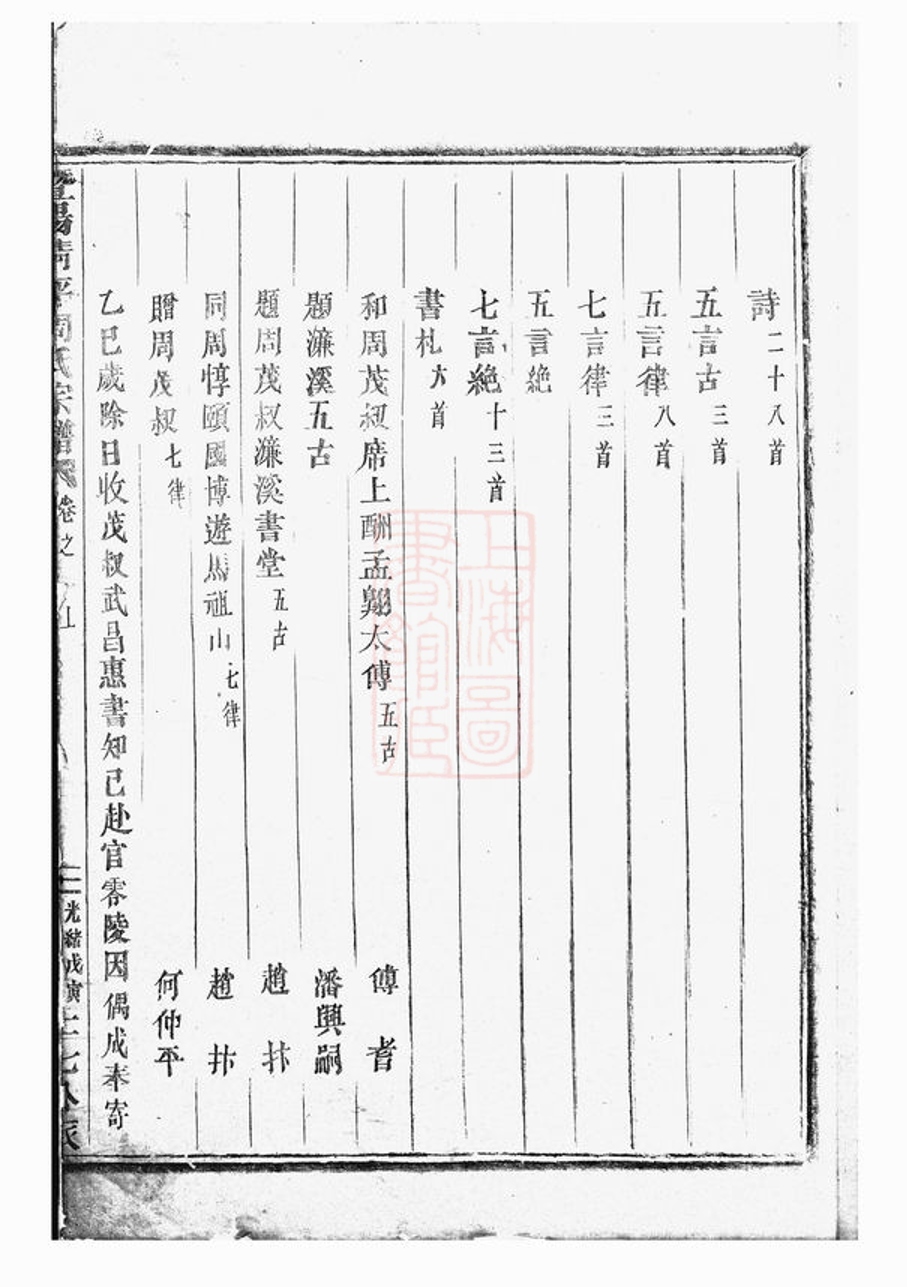 詩二十八首
五言古三首
五言律八首
七言律三首
五言絶
七言絶十三首
書札六首
和周茂叔席上酬孟翺太傅五古 傅耆
題濂溪五古 潘興嗣
題周茂叔濂溪書堂五古 趙抃
同周惇頤國博遊馬祖山七律 趙抃
贈周茂叔七律 何仲平
乙巳歲除日收茂叔武昌惠書知已赴官零陵因偶成奉寄
暨陽清平周氏宗譜 卷之
光緒戊寅
上海圖書館藏